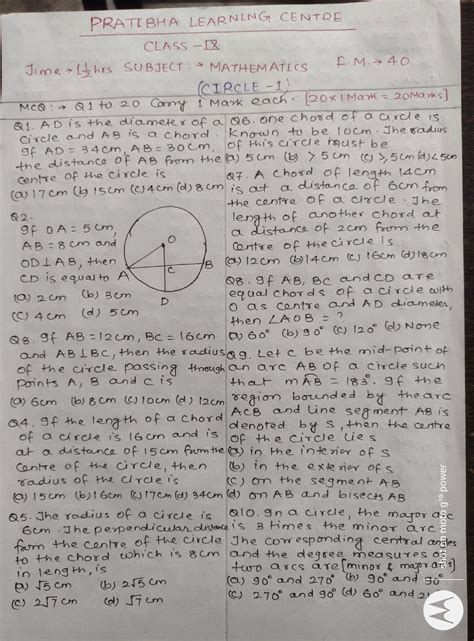 PRATIBHA LEARNING CENTRE
CLASS - IX
Time → 1½ hrs SUBJECT :→ MATHEMATICS F.M → 40
(CIRCLE - I)
MCQ :→ Q1 to 20 Carry 1 Mark each. [20×1 Mark = 20 Marks]
Q1. AD is the diameter of a
circle and AB is a chord
If AD = 34cm, AB = 30cm,
the distance of AB from the
centre of the circle is
(a) 17cm (b) 15cm (c) 4cm (d) 8cm
Q2.
If OA = 5cm,
AB = 8cm and
OD⊥AB, then
CD is equal to
(a) 2cm (b) 3cm
(c) 4cm (d) 5cm
O
A
C
B
D
Q3. If AB = 12cm, BC = 16cm
and AB⊥BC, then the radius
of the circle passing through
points A, B and C is
(a) 6cm (b) 8cm (c) 10cm (d) 12cm
Q4. If the length of a chord
of a circle is 16cm and is
at a distance of 15cm from the
Centre of the circle, then
radius of the circle is
(a) 15cm (b) 16cm (c) 17cm (d) 34cm
Q5. The radius of a circle is
6cm. The perpendicular distance
from the centre of the circle
to the chord which is 8cm
in length, is
(a) √5 cm (b) 2√5 cm
(c) 2√7 cm (d) √7 cm
Q6. One chord of a circle is
known to be 10cm. The radius
of this circle must be
(a) 5cm (b) > 5cm (c) ≥ 5cm (d) < 5cm
Q7. A chord of length 14cm
is at a distance of 6cm from
the centre of a circle. The
length of another chord at
a distance of 2cm from the
centre of the circle is
(a) 12cm (b) 14cm (c) 16cm (d) 18cm
Q8. If AB, BC and CD are
equal chords of a circle with
O as centre and AD diameter,
then ∠AOB = ?
(a) 60° (b) 90° (c) 120° (d) None
Q9. Let C be the mid-point of
an arc AB of a circle such
that m AB = 183°. If the
region bounded by the arc
ACB and line segment AB is
denoted by S, then the centre
of the circle lies
(a) in the interior of S
(b) in the exterior of S
(c) on the segment AB
(d) on AB and bisects AB
Q10. In a circle, the major arc
is 3 times the minor arc.
The corresponding central angles
and the degree measures of
two arcs are [minor & major arcs]
(a) 90° and 270° (b) 90° and 90°
(c) 270° and 90° (d) 60° and
Shot on moto g¹⁰ power